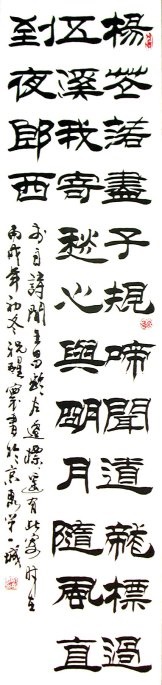 楊花落盡子規啼聞道龍標過
五溪我寄愁心與明月隨風直
到夜郎西
李白詩聞王昌齡左遷標遙有此寄時在
丙戌年初冬祝醒書於京東第一城